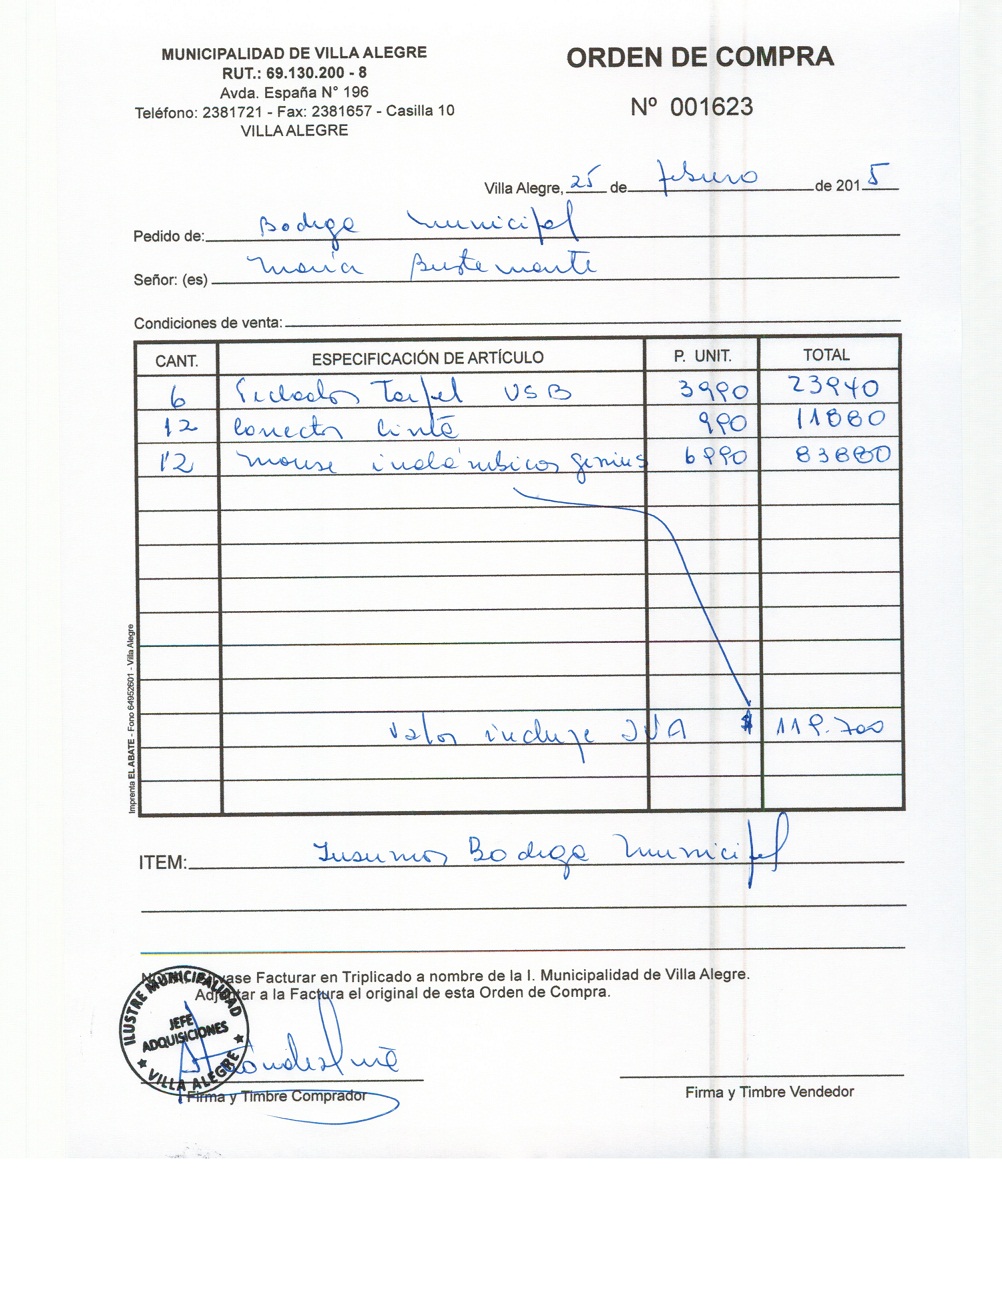 MUNICIPALIDAD DE VILLA ALEGRE
RUT.: 69.130.200 - 8
Avda. España N° 196
Teléfono: 2381721 - Fax: 2381657 - Casilla 10
VILLA ALEGRE
ORDEN DE COMPRA
Nº 001623
Villa Alegre, 25 de febrero de 2015
Pedido de: Bodega Municipal
Señor: (es) María Bustamante
Condiciones de venta:
CANT. ESPECIFICACIÓN DE ARTÍCULO P. UNIT. TOTAL
6 Teclados USB 3990 23940
12 Conector Cinta 990 11880
12 mouse inalámbicos genius 6990 83880
Valor incluye IVA $ 119.700
Imprenta EL ABATE - Fono 64952601 - Villa Alegre
ITEM: Insumos Bodega Municipal
vase Facturar en Triplicado a nombre de la I. Municipalidad de Villa Alegre.
Adjuntar a la Factura el original de esta Orden de Compra.
ILUSTRE MUNICIPALIDAD
JEFE
ADQUISICIONES
VILLA ALEGRE
Firma y Timbre Comprador
Firma y Timbre Vendedor